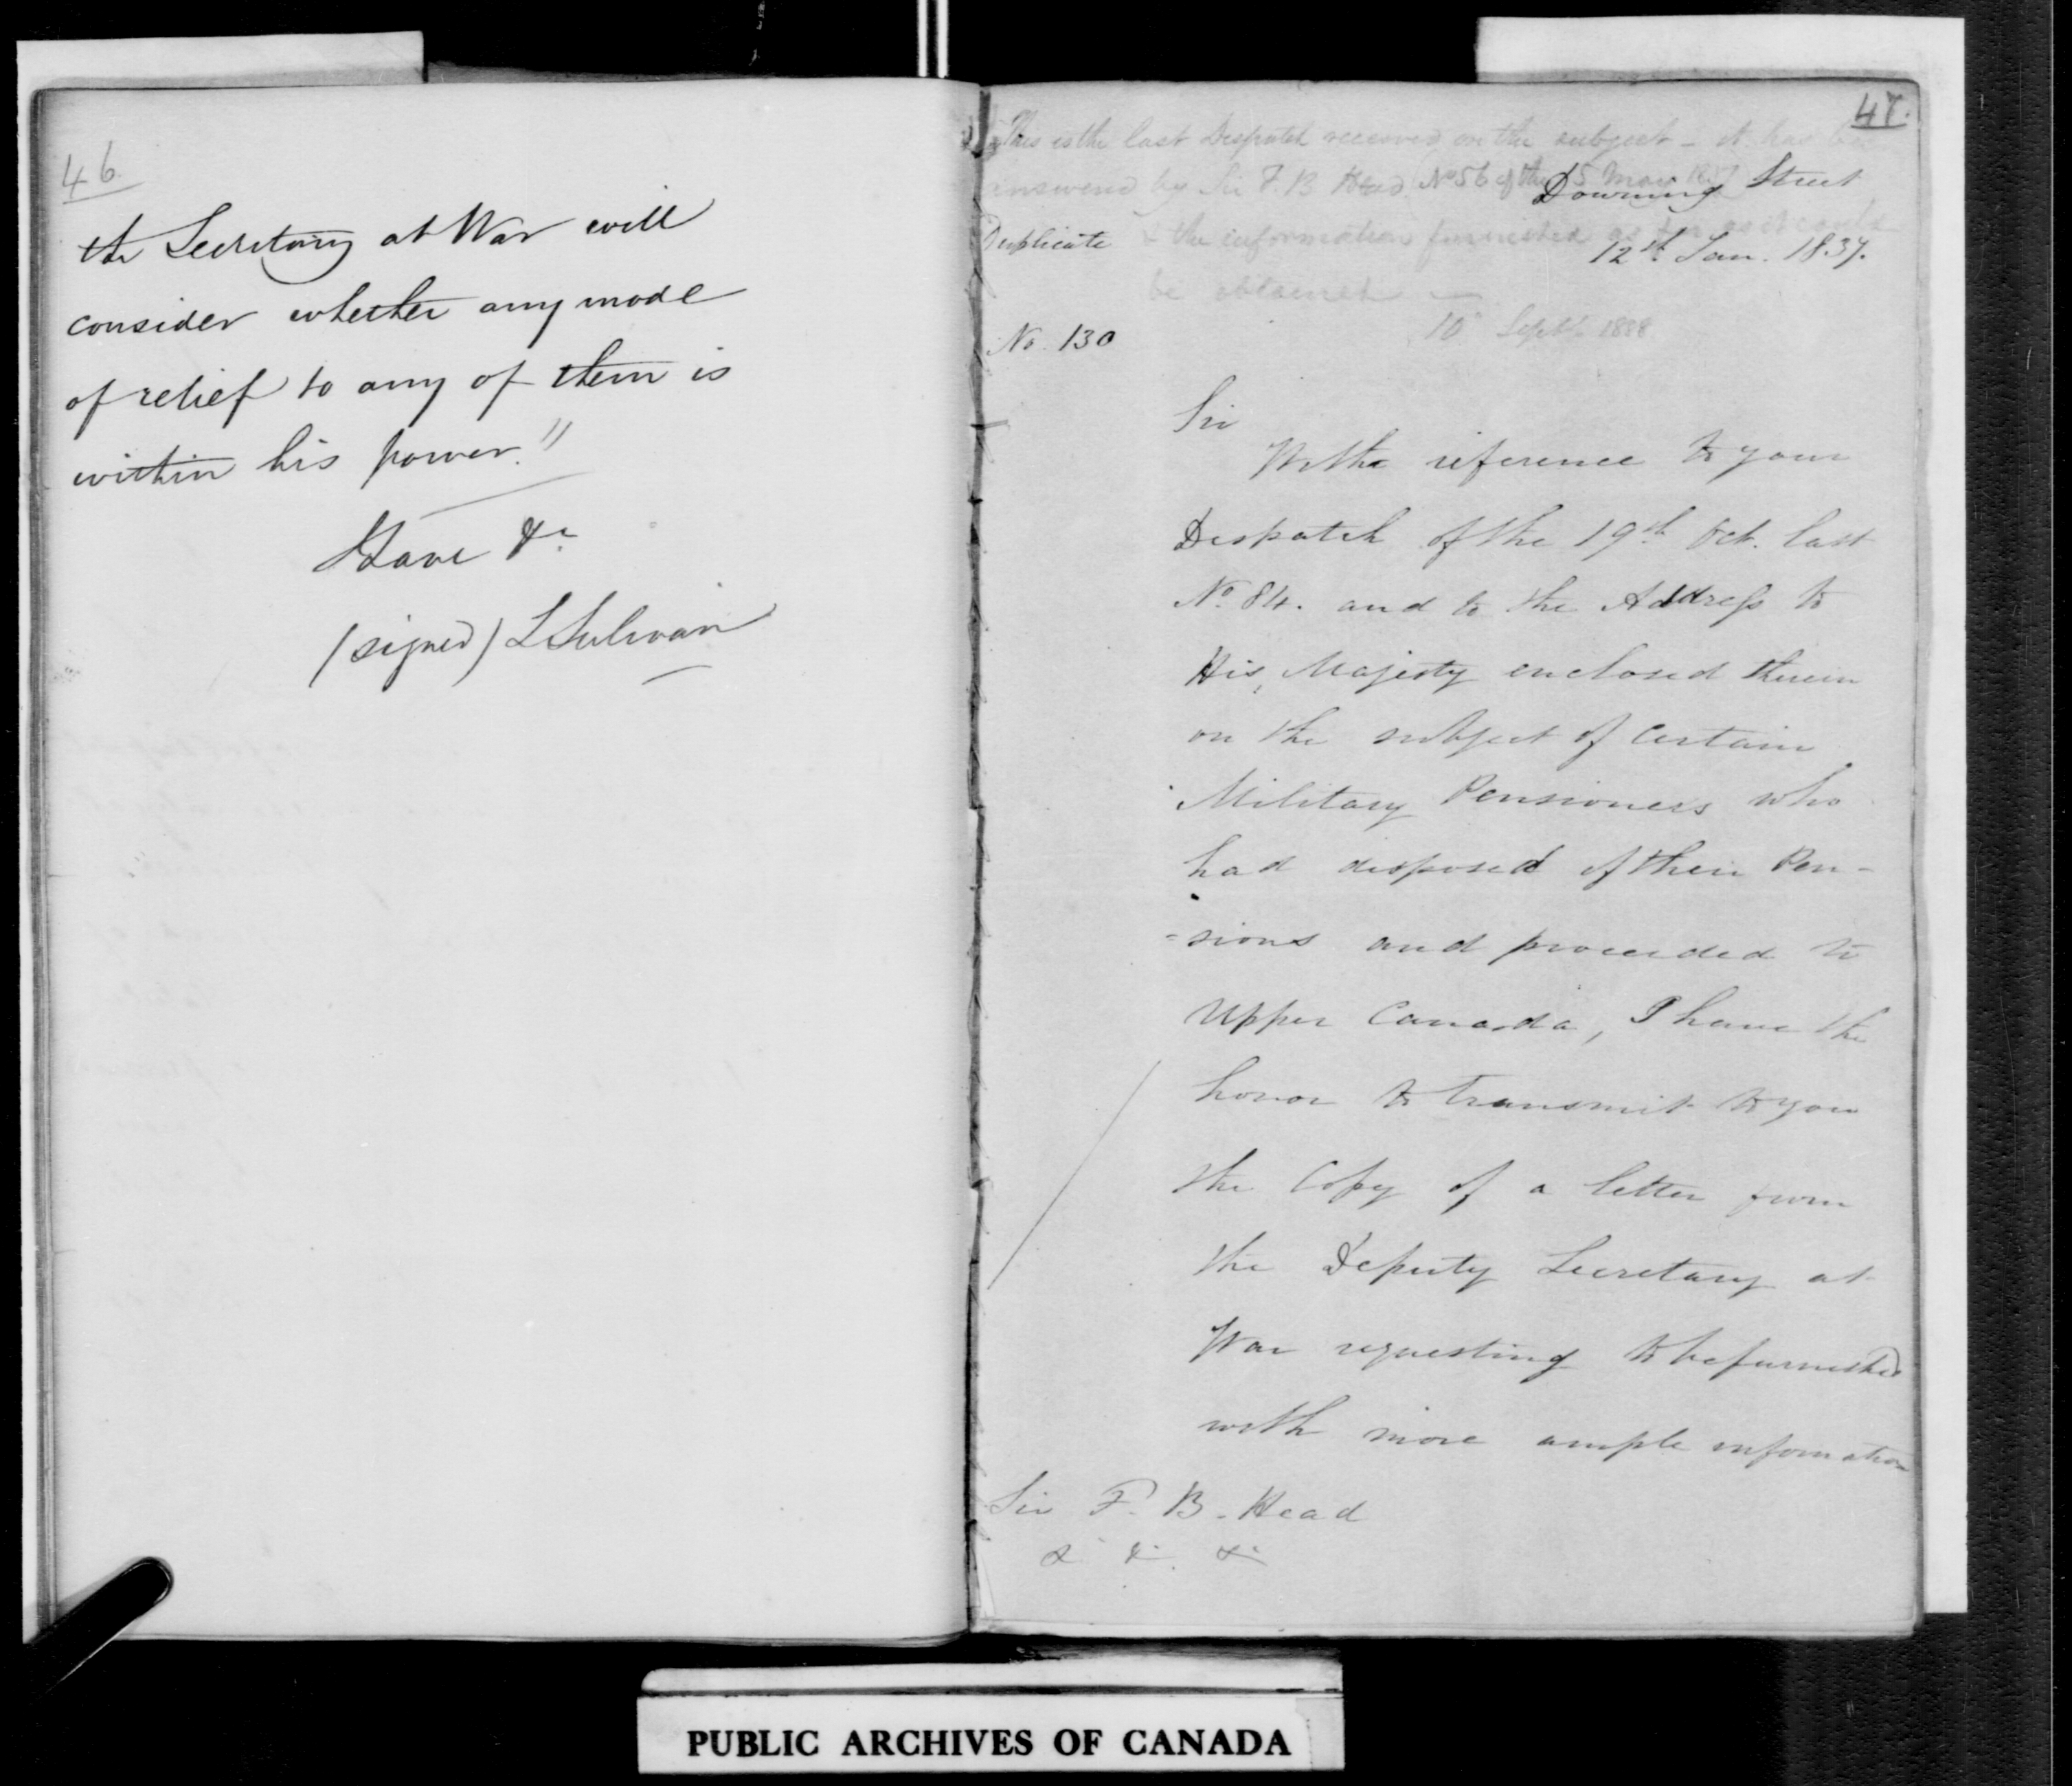 46
the Secretary at War will
consider whether any mode
of relief to any of them is
within his power."
Have &c
(signed) L Sulivan
47.
This is the last Despatch received on the subject - it has
answered by Sir F. B Head No 56 of the 5 1837
& the information furnished as far as it could
be obtained —
10 Septr 1838
Downing Street
Duplicate
12th Jan. 1837.
No. 130
Sir
With reference to your
Despatch of the 19th Oct. last
No. 84. and to the Address to
His Majesty enclosed therein
on the subject of certain
Military Pensioners who
had disposed of their Pen-
=sions and proceeded to
Upper Canada, I have the
honor to transmit to you
the Copy of a letter from
the Deputy Secretary at
War requesting to be furnished
with more ample information
Sir F. B. Head
& & &
PUBLIC ARCHIVES OF CANADA